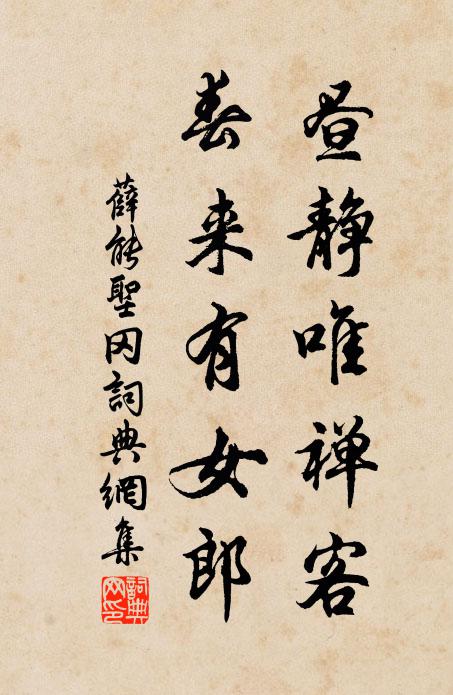 昼静唯禅客
春来有女郎
薛能聖冈詞典網集
詞典网印